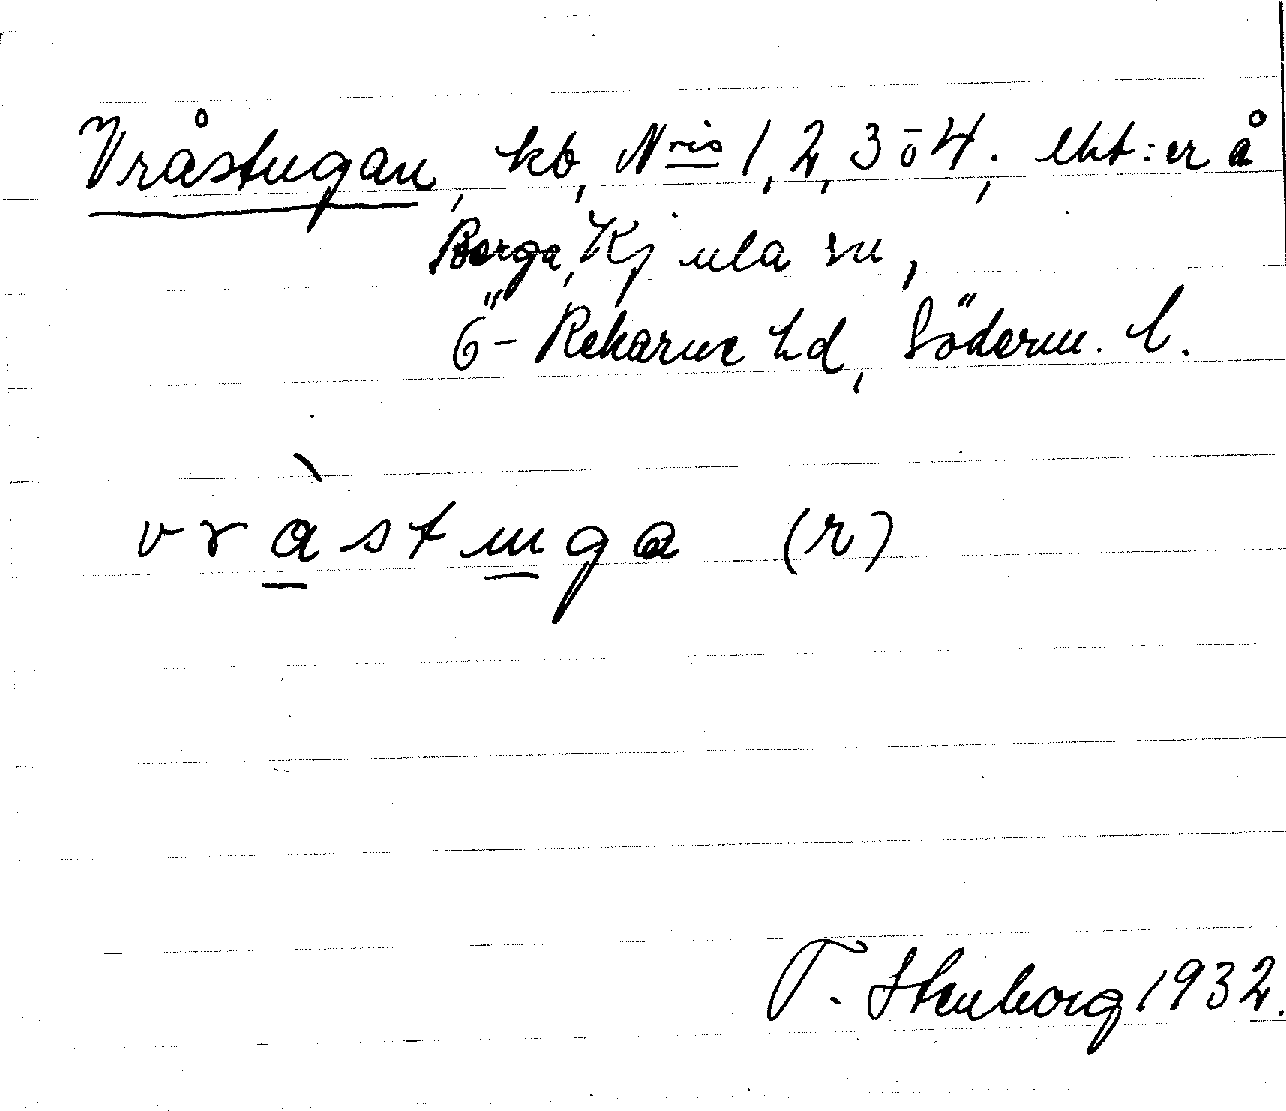 Vråstugan, kb, N:ris 1, 2, 3 o 4; lht:er å
Berga, Kjula sn,
Ö-Rekarne hd, Söderm. l.
vràstuga (r)
T. Stenborg 1932.